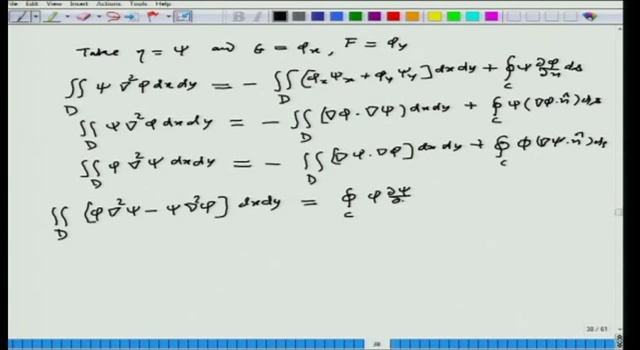 File Edit View Insert Actions Tools Help
Take η = ψ and G = φ_x, F = φ_y
∬_D ψ ∇²φ dxdy = - ∬_D [φ_x ψ_x + φ_y ψ_y] dxdy + ∮_C ψ ∂φ/∂n ds
∬_D ψ ∇²φ dxdy = - ∬_D (∇φ · ∇ψ) dxdy + ∮_C ψ (∇φ · n̂) ds
∬_D φ ∇²ψ dxdy = - ∬_D [∇ψ · ∇φ] dxdy + ∮_C φ (∇ψ · n̂) ds
∬_D [φ ∇²ψ - ψ ∇²φ] dxdy = ∮_C φ ∂ψ/∂
38 / 61
38